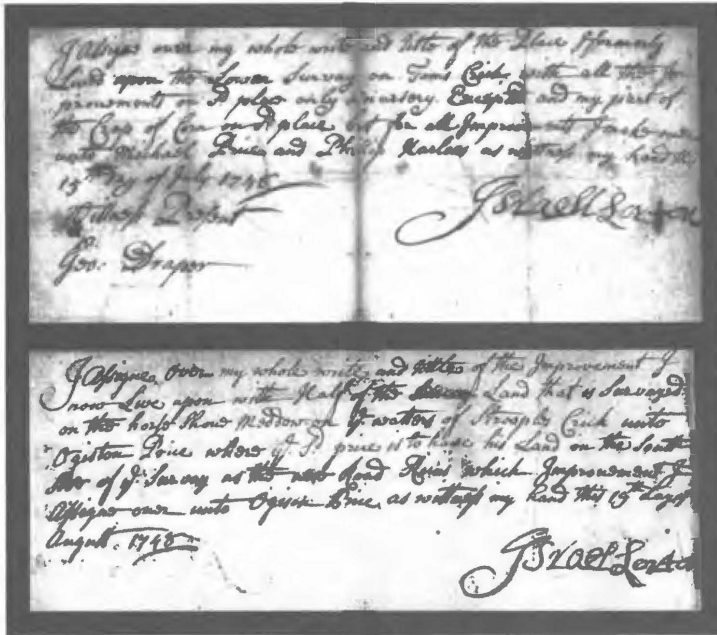 I assigne over my whole write and title of the Place I formerly
Lived upon the Lower Survay on Toms Crick with all the Im
provements on sd place only a nursery Excepted and my part of
the Crop of Corn on sd place but for all Improvements I make over
unto Michael Price and Philip Harless as witness my hand this
15th Day of July 1748
Wittness Present
Geo: Draper
Israell Lorton
I assigne over my whole write and title of the Improvement I
now Live upon with Half of the Land that is Survayed
on the horse Shoue Meddow on ye waters of Strooples Crick unto
Ogiston Price where ye sd price is to have his Land on the South
Side of ye Survay as the new Road Runs which Improvement I
assigne over unto Price as witness my hand this 15th Day of
August 1748
Israel Lorton